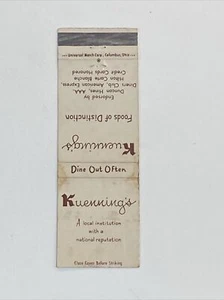 Universal Match Corp., Columbus, Ohio
Endorsed by
Duncan Hines, AAA,
Diners Club, American Express,
Hilton Carte Blanche
Credit Cards Honored
Foods of Distinction
Kuenning's
Dine Out Often
Kuenning's
A local institution
with a
national reputation
Close Cover Before Striking